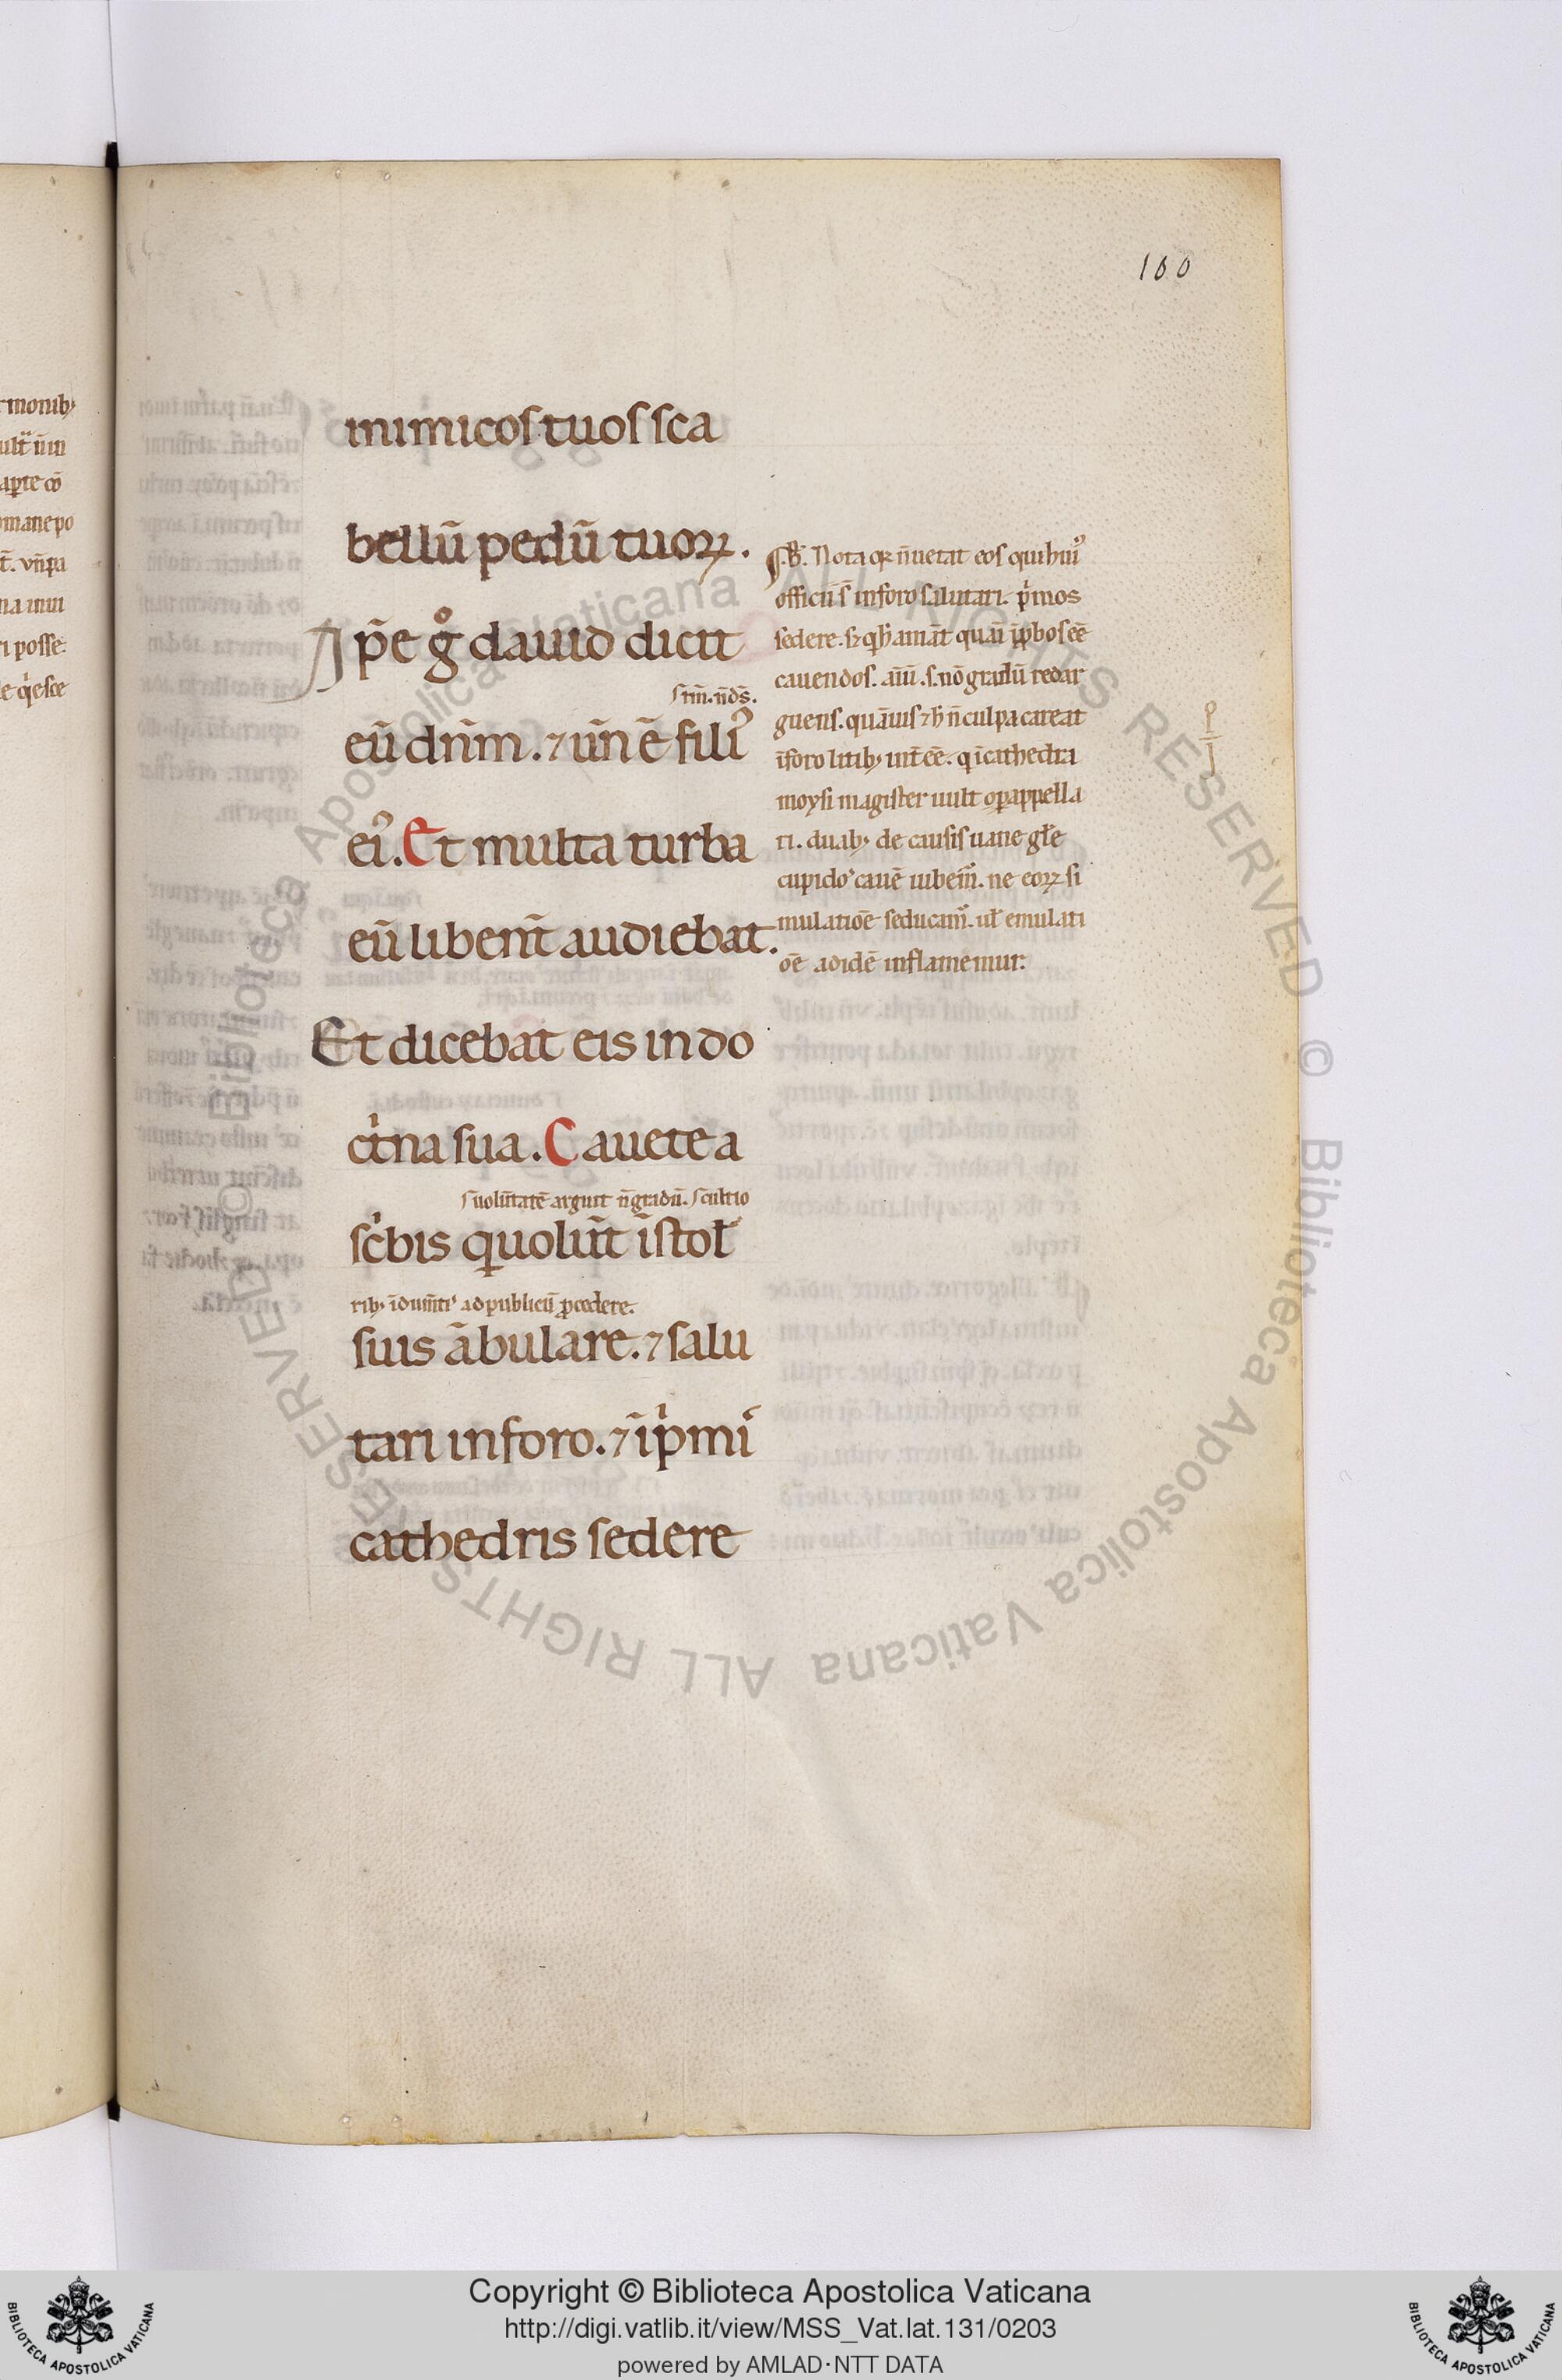 100
mimicos tuos sca
bellū pedū tuoꝝ.
Ip̄e g̊ dauid dicit
stm̄. n̄ds̄.
eū dn̄m. ⁊ un̄ ē filiꝰ
eiꝰ. Et multa turba
eū libent̄ audiebat.
Et dicebat eis in do
ctͥna sua. Cauete a
s uolūtatē arguit n̄ gradū. s cultio
scͥbis q uolūt ī stol
rib; īdumt̄ꝰ ad publicū ꝓcedere.
suis ābulare. ⁊ salu
tari in foro. ⁊ ī pͥmi
cathedris sedere
B. Nota qꝛ n̄ uetat eos qui huiꝰ
officii s̄ in foro salutari. pͥmos
sedere. sꝫ q h̄ amāt quāuis īꝓbos eē
cauendos. aīū .s. nō gradū redar
guens. quāuis ⁊ h̄ n̄ culpa careat
ī foro litib; int̄eē. q ī cathedra
moysi magister uult opappella
ri. duab; de causis uane gl̄e
cupidoꝰ cauē iubem̄. ne eoꝝ si
mulatiōe seducam̄. ul emulati
ōe ad idē inflamemur.
rmonib;
ult̄ um
aperte cō
omane po
t̄. vn̄ pa
na inui
ri posse.
le q̄esce
© Biblioteca Apostolica Vaticana ALL RIGHTS RESERVED
© Biblioteca Apostolica Vaticana ALL RIGHTS RESERVED
BIBLIOTECA APOSTOLICA VATICANA
Copyright © Biblioteca Apostolica Vaticana
http://digi.vatlib.it/view/MSS_Vat.lat.131/0203
powered by AMLAD·NTT DATA
BIBLIOTECA APOSTOLICA VATICANA